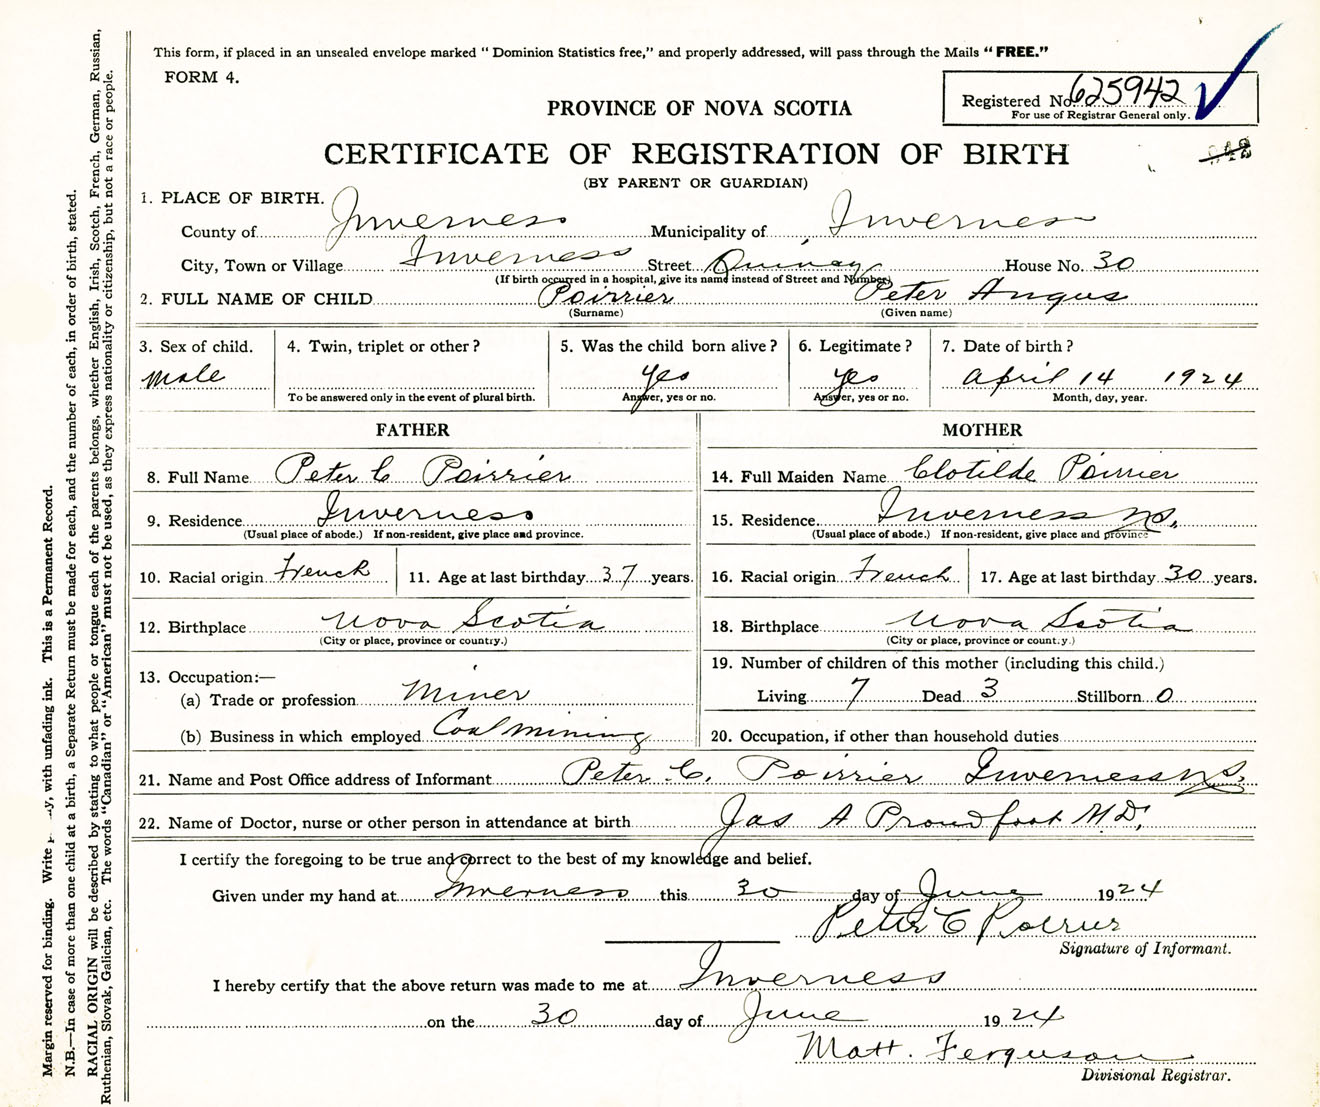 This form, if placed in an unsealed envelope marked "Dominion Statistics free," and properly addressed, will pass through the Mails "FREE."
FORM 4.
Registered No. 625942
For use of Registrar General only.
PROVINCE OF NOVA SCOTIA
CERTIFICATE OF REGISTRATION OF BIRTH
(BY PARENT OR GUARDIAN)
1. PLACE OF BIRTH.
County of Inverness Municipality of Inverness
City, Town or Village Inverness Street House No. 30
(If birth occurred in a hospital, give its name instead of Street and Number)
2. FULL NAME OF CHILD Poirrier Peter Angus
(Surname) (Given name)
3. Sex of child. 4. Twin, triplet or other? 5. Was the child born alive? 6. Legitimate? 7. Date of birth?
male yes yes April 14 1924
To be answered only in the event of plural birth. Answer, yes or no. Answer, yes or no. Month, day, year.
FATHER MOTHER
8. Full Name Peter C Poirrier 14. Full Maiden Name Clotilde Poirrier
9. Residence Inverness 15. Residence. Inverness NS.
(Usual place of abode.) If non-resident, give place and province. (Usual place of abode.) If non-resident, give place and province
10. Racial origin French 11. Age at last birthday 37 years. 16. Racial origin French 17. Age at last birthday 30 years.
12. Birthplace Nova Scotia 18. Birthplace Nova Scotia
(City or place, province or country.) (City or place, province or country.)
13. Occupation:— 19. Number of children of this mother (including this child.)
(a) Trade or profession Miner Living 7 Dead 3 Stillborn 0
(b) Business in which employed Coal mining 20. Occupation, if other than household duties
21. Name and Post Office address of Informant Peter C. Poirrier Inverness NS.
22. Name of Doctor, nurse or other person in attendance at birth Jas A Proudfoot M.D.
I certify the foregoing to be true and correct to the best of my knowledge and belief.
Given under my hand at Inverness this 30 day of June 1924
Peter C Poirrier
Signature of Informant.
I hereby certify that the above return was made to me at Inverness
on the 30 day of June 1924
Matt. Ferguson
Divisional Registrar.
Margin reserved for binding. Write with unfading ink. This is a Permanent Record.
N.B.—In case of more than one child at a birth, a Separate Return must be made for each, and the number of each, in order of birth, stated.
RACIAL ORIGIN will be described by stating to what people or tongue each of the parents belongs, whether English, Irish, Scotch, French, German, Russian,
Ruthenian, Slovak, Galician, etc. The words "Canadian" or "American" must not be used, as they express nationality or citizenship, but not a race or people.